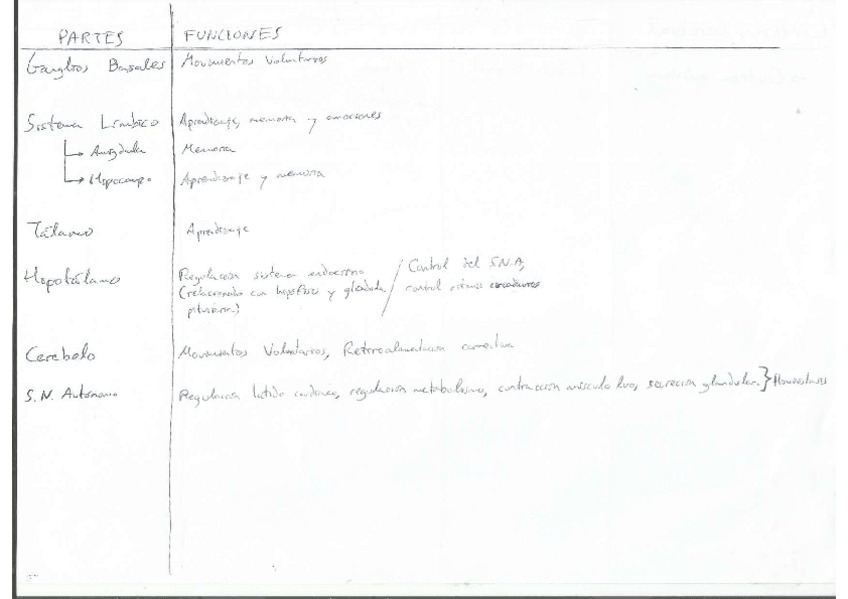 PARTES FUNCIONES
Ganglios Basales Movimientos Voluntarios
Sistema Límbico Aprendizaje, memoria y emociones
Amígdala Memoria
Hipocampo Aprendizaje y memoria
Tálamo Aprendizaje
Hipotálamo Regulación sistema endocrino / Control del S.N.A,
(relacionado con hipófisis y glándula control ritmos circadianos
pituitaria)
Cerebelo Movimientos Voluntarios, Retroalimentación correctiva
S.N. Autónomo Regulación latido cardiaco, regulación metabolismo, contracción músculo liso, secreción glandular } Homeostasis